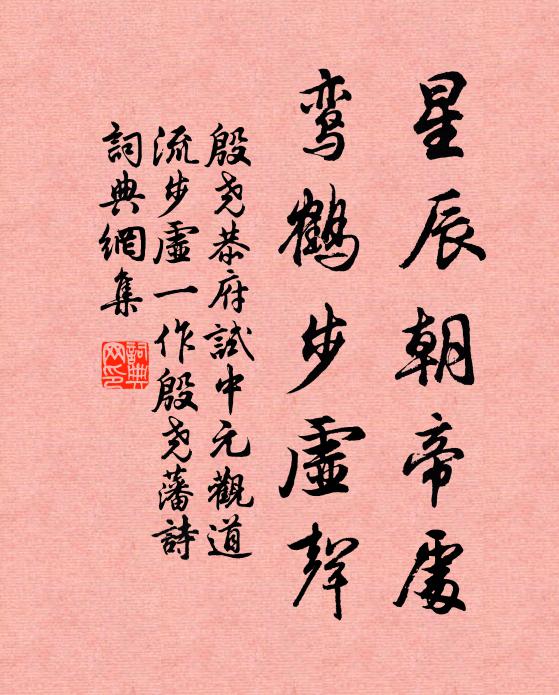 星辰朝帝處
鸾鶴步虛聲
殷尧恭府試中元觀道
流步虛一作殷尧藩詩
詞典網集
詞典网印